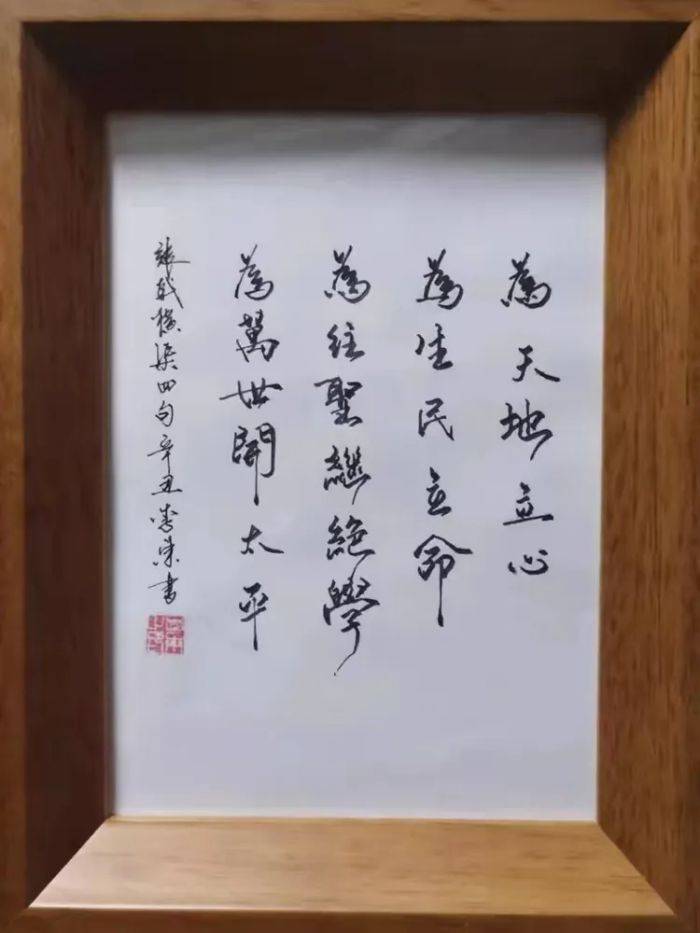 為天地立心
為生民立命
為往聖繼絕學
為萬世開太平
張載橫渠四句辛丑書